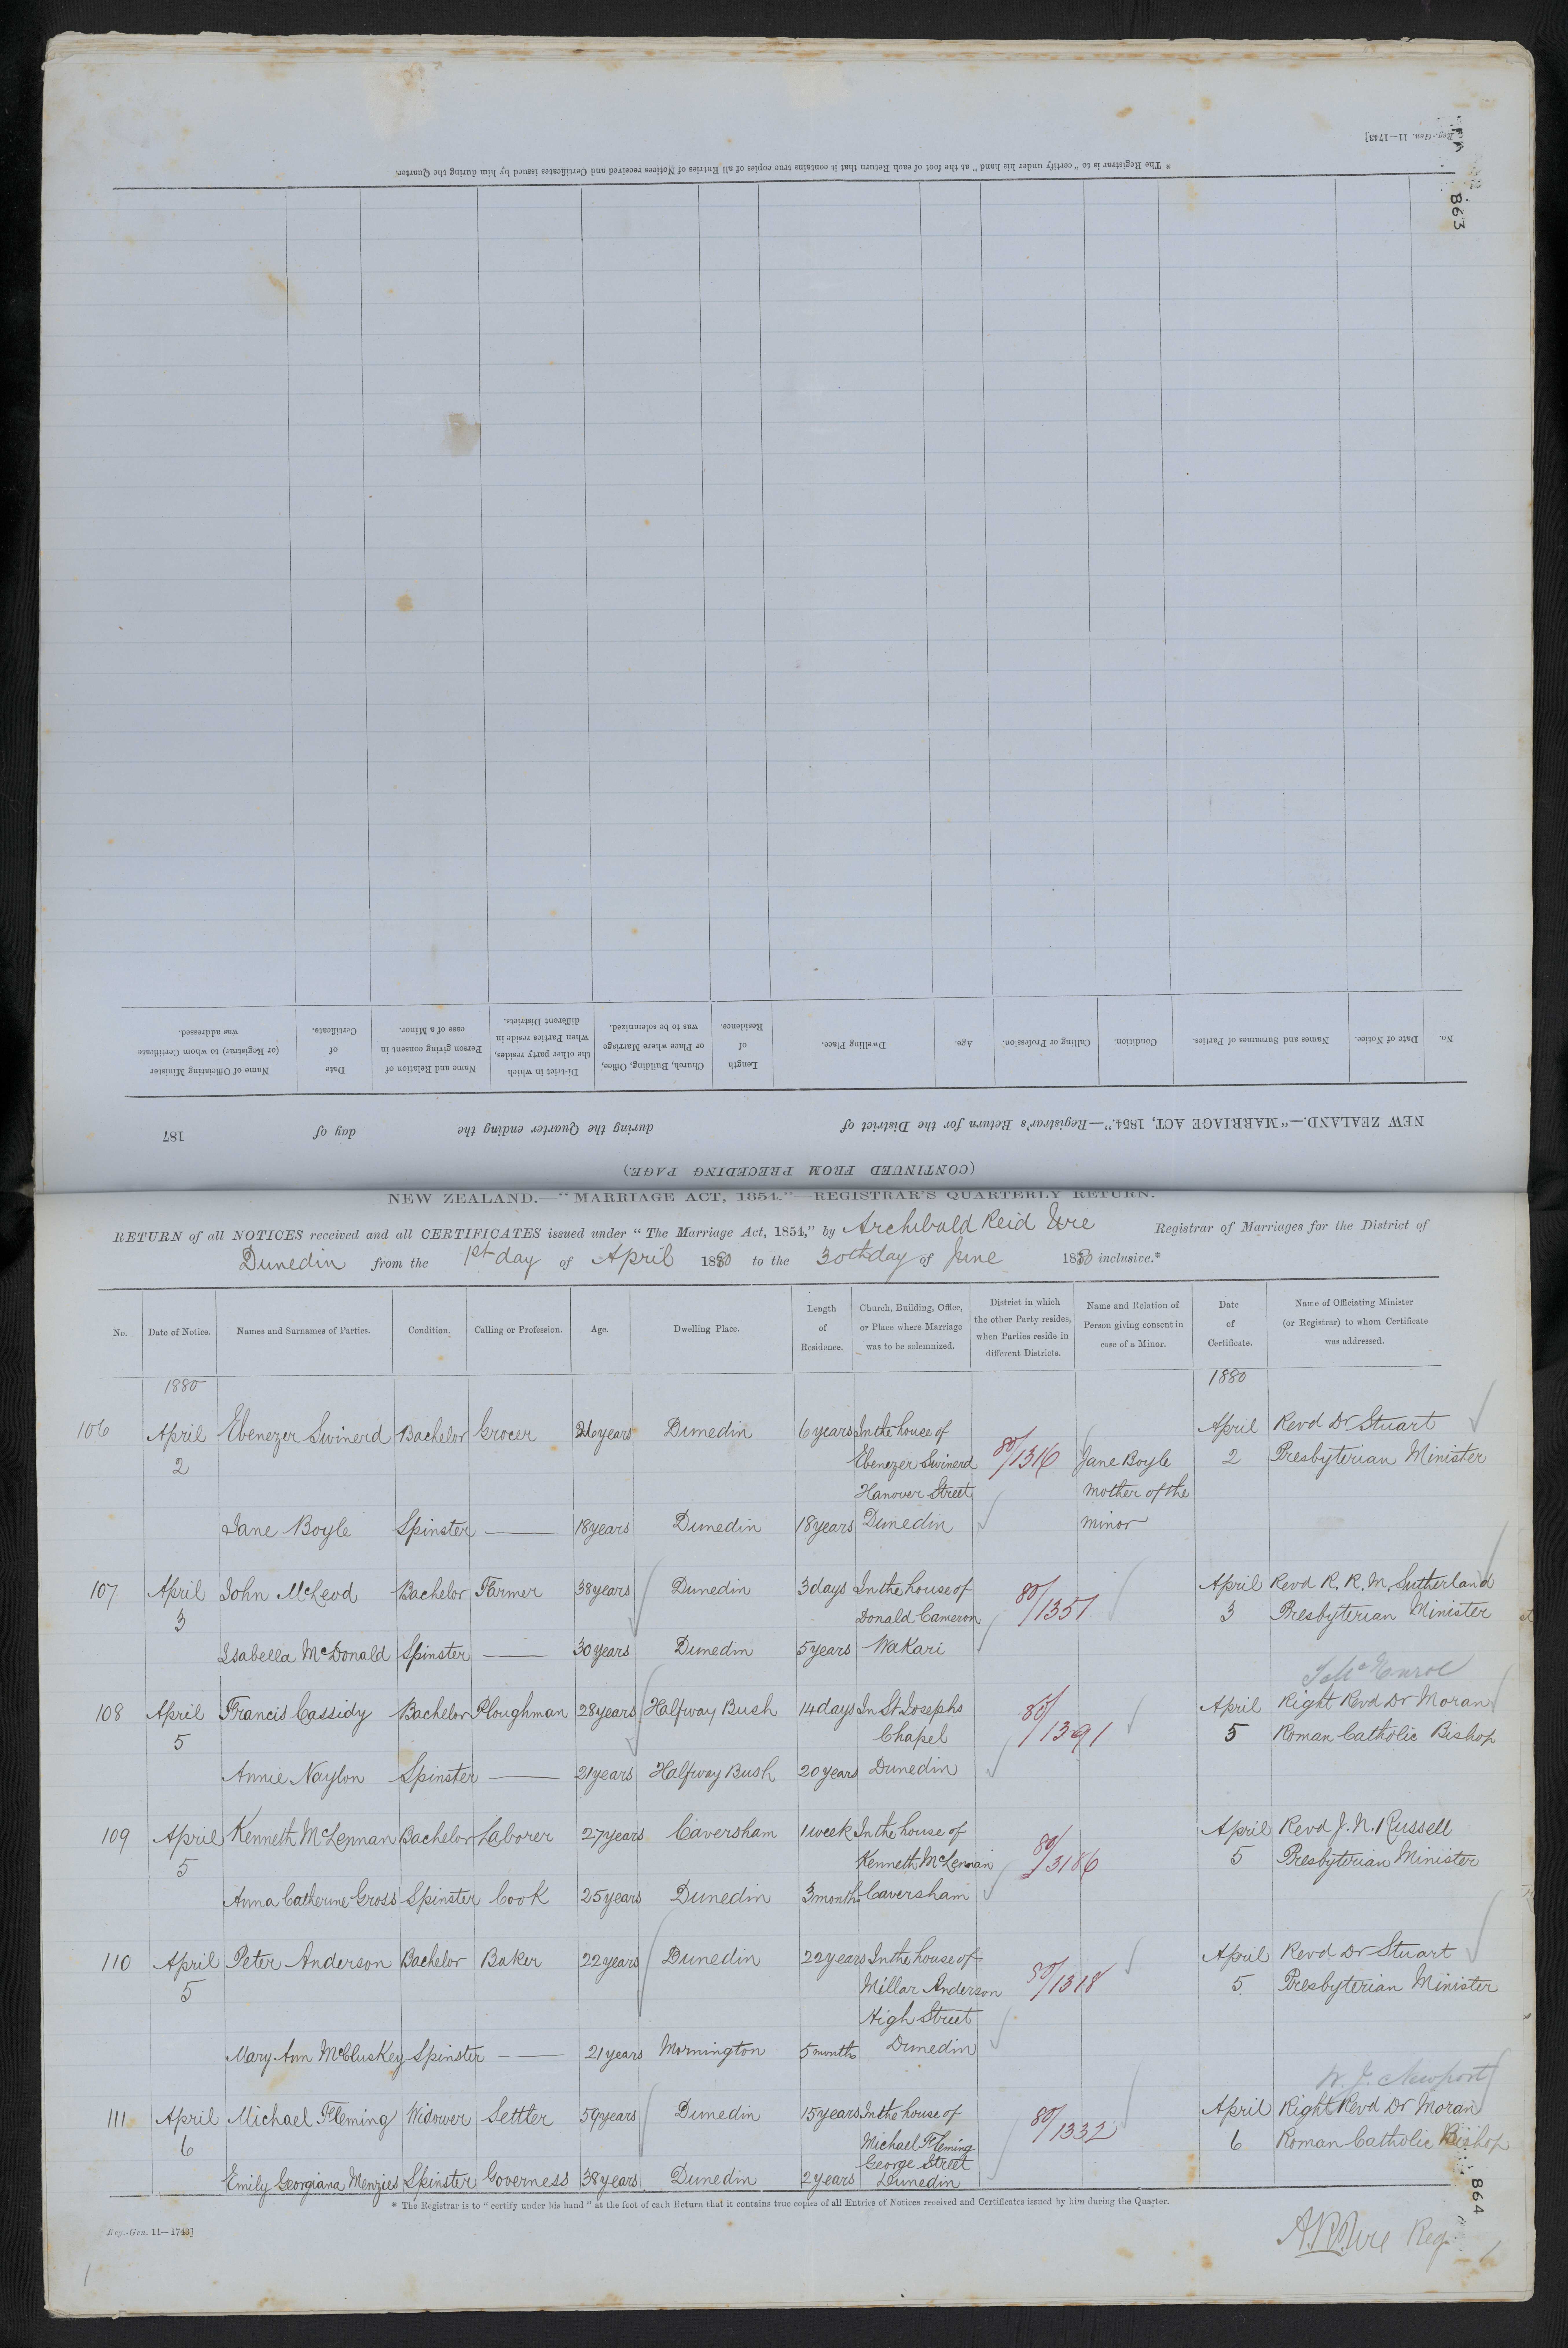 Reg.-Gen. 11—1743]
863
* The Registrar is to "certify under his hand" at the foot of each Return that it contains true copies of all Entries of Notices received and Certificates issued by him during the Quarter.
No. Date of Notice. Names and Surnames of Parties. Condition. Calling or Profession. Age. Dwelling Place. Length of Residence. Church, Building, Office, or Place where Marriage was to be solemnized. District in which the other party resides, when Parties reside in different Districts. Name and Relation of Person giving consent in case of a Minor. Date of Certificate. Name of Officiating Minister (or Registrar) to whom Certificate was addressed.
NEW ZEALAND.—"MARRIAGE ACT, 1854."—Registrar's Return for the District of during the Quarter ending the day of 187
(CONTINUED FROM PRECEDING PAGE.)
NEW ZEALAND.—"MARRIAGE ACT, 1854."—REGISTRAR'S QUARTERLY RETURN.
RETURN of all NOTICES received and all CERTIFICATES issued under "The Marriage Act, 1854," by Archibald Reid Ure Registrar of Marriages for the District of
Dunedin from the 1st day of April 1880 to the 30th day of June 1880 inclusive.*
No. Date of Notice. Names and Surnames of Parties. Condition. Calling or Profession. Age. Dwelling Place. Length of Residence. Church, Building, Office, or Place where Marriage was to be solemnized. District in which the other Party resides, when Parties reside in different Districts. Name and Relation of Person giving consent in case of a Minor. Date of Certificate. Name of Officiating Minister (or Registrar) to whom Certificate was addressed.
1880 1880
106 April Ebenezer Swinerd Bachelor Grocer 26 years Dunedin 6 years In the house of April Revd Dr Stuart
2 Ebenezer Swinerd 80/1316 Jane Boyle 2 Presbyterian Minister
Hanover Street Mother of the
Jane Boyle Spinster 18 years Dunedin 18 years Dunedin minor
107 April John McLeod Bachelor Farmer 38 years Dunedin 3 days In the house of 80/1351 April Revd R. R. M. Sutherland
3 Donald Cameron 3 Presbyterian Minister
Isabella McDonald Spinster 30 years Dunedin 5 years Wakari
108 April Francis Cassidy Bachelor Ploughman 28 years Halfway Bush 14 days In St Josephs 80/1391 April Right Revd Dr Moran
5 Chapel 5 Roman Catholic Bishop
Annie Naylon Spinster 21 years Halfway Bush 20 years Dunedin
109 April Kenneth McLennan Bachelor Laborer 27 years Caversham 1 week In the house of April Revd J. N. Russell
5 Kenneth McLennan 80/3186 5 Presbyterian Minister
Anna Catherine Gross Spinster Cook 25 years Dunedin 3 months Caversham
110 April Peter Anderson Bachelor Baker 22 years Dunedin 22 years In the house of April Revd Dr Stuart
5 Millar Anderson 80/1318 5 Presbyterian Minister
High Street
Mary Ann McCluskey Spinster 21 years Mornington 5 months Dunedin
W. J. Newport
111 April Michael Fleming Widower Settler 59 years Dunedin 15 years In the house of 80/1332 April Right Revd Dr Moran
6 Michael Fleming 6 Roman Catholic Bishop
George Street
Emily Georgiana Menzies Spinster Governess 38 years Dunedin 2 years Dunedin
* The Registrar is to "certify under his hand" at the foot of each Return that it contains true copies of all Entries of Notices received and Certificates issued by him during the Quarter.
864
Reg.-Gen. 11—1743]
A.R. Ure Reg.